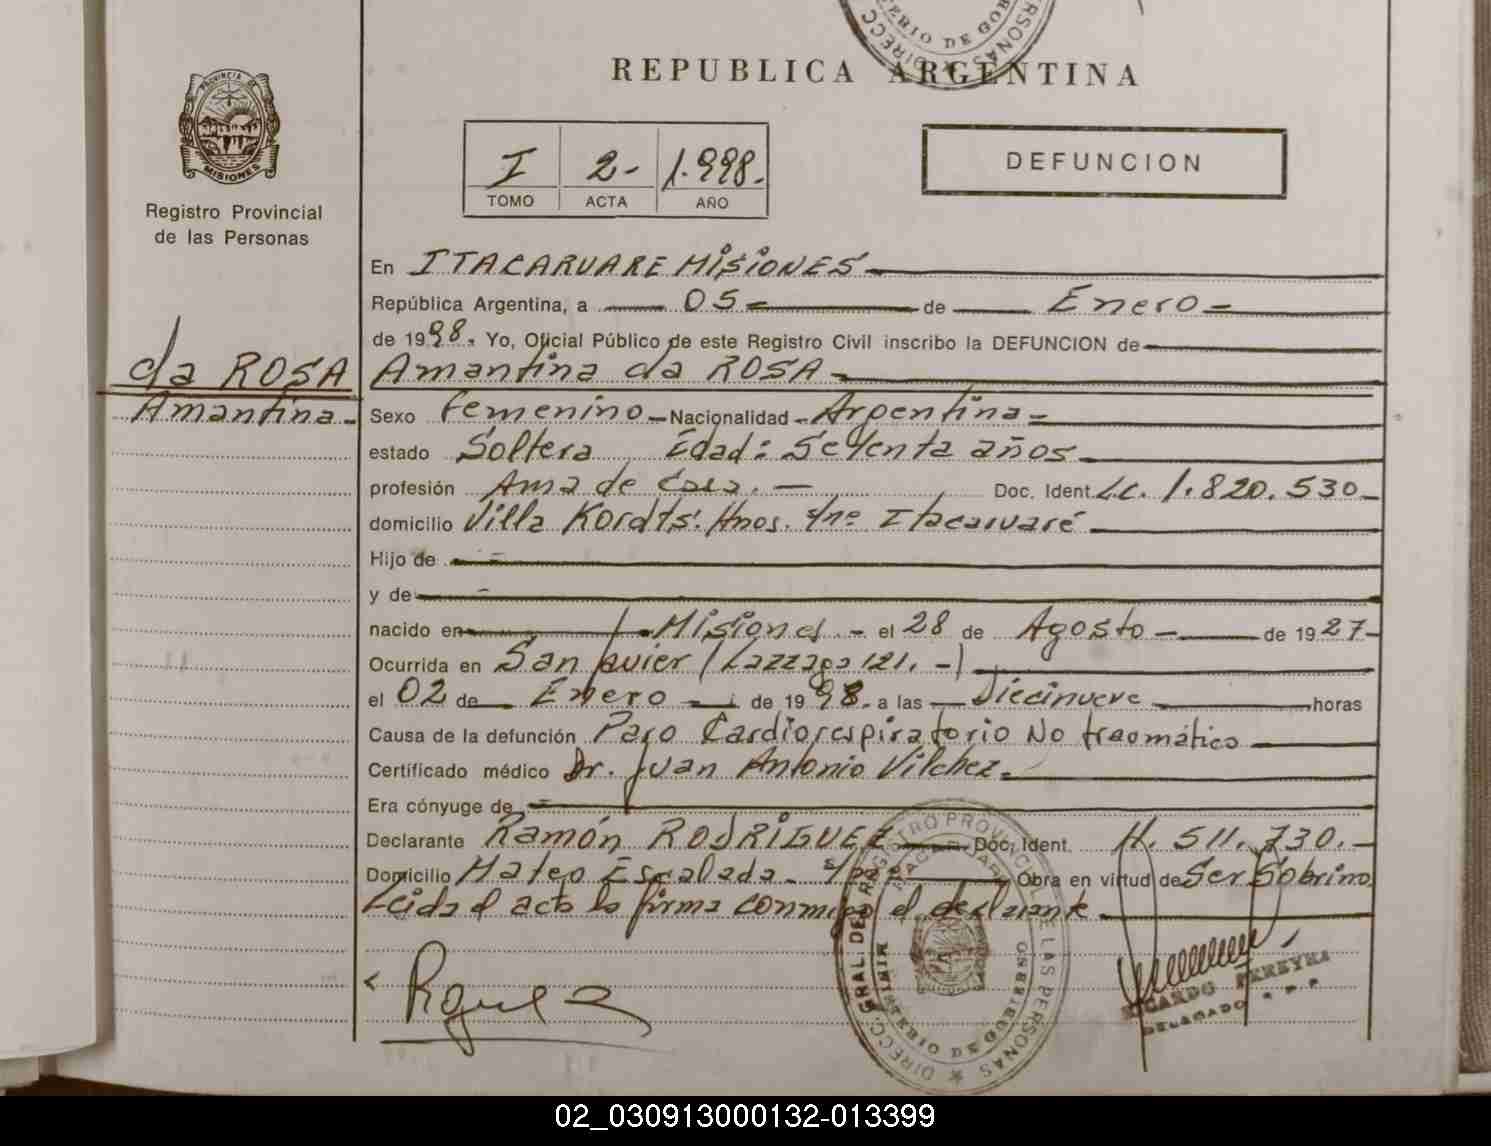 REPUBLICA ARGENTINA
PROVINCIA DE
MISIONES
Registro Provincial
de las Personas
I 2- 1.998.-
TOMO ACTA AÑO
DEFUNCION
En ITACARUARE MISIONES
República Argentina, a 05 de Enero
de 1998. Yo, Oficial Público de este Registro Civil inscribo la DEFUNCION de
da ROSA
Amantina
Amantina da ROSA
Sexo Femenino Nacionalidad Argentina
estado Soltera Edad: Setenta años
profesión Ama de Casa. Doc. Ident. L.C. 1.820.530
domicilio Villa Kordts: Hnos. s/nº Itacaruaré
Hijo de
y de
nacido en Misiones el 28 de Agosto de 1927
Ocurrida en San Javier
el 02 de Enero de 1998. a las Diecinueve horas
Causa de la defunción Paro Cardiorespiratorio No traomático
Certificado médico Dr. Juan Antonio Vilchez
Era cónyuge de
Declarante Ramón RODRIGUEZ Doc. Ident. 11.511.730.
Domicilio Mateo Escalada s/nº Obra en virtud de Ser Sobrino
Leida el acta la firma conmigo el declarante
DIRECC. GRAL. DEL REGISTRO PROVINCIAL DE LAS PERSONAS
RICARDO PEREYRA
DELEGADO R.P.P.
02_030913000132-013399